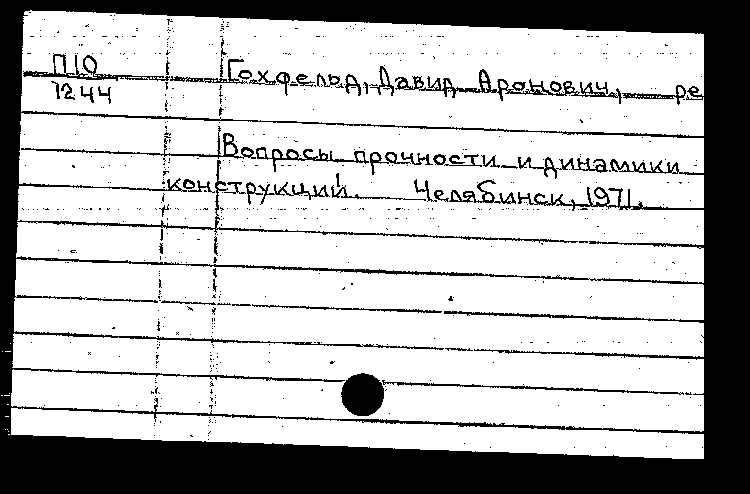 П10 Гохфельд, Давид Аронович, ре
1244
Вопросы прочности и динамики
конструкций. Челябинск, 1971.